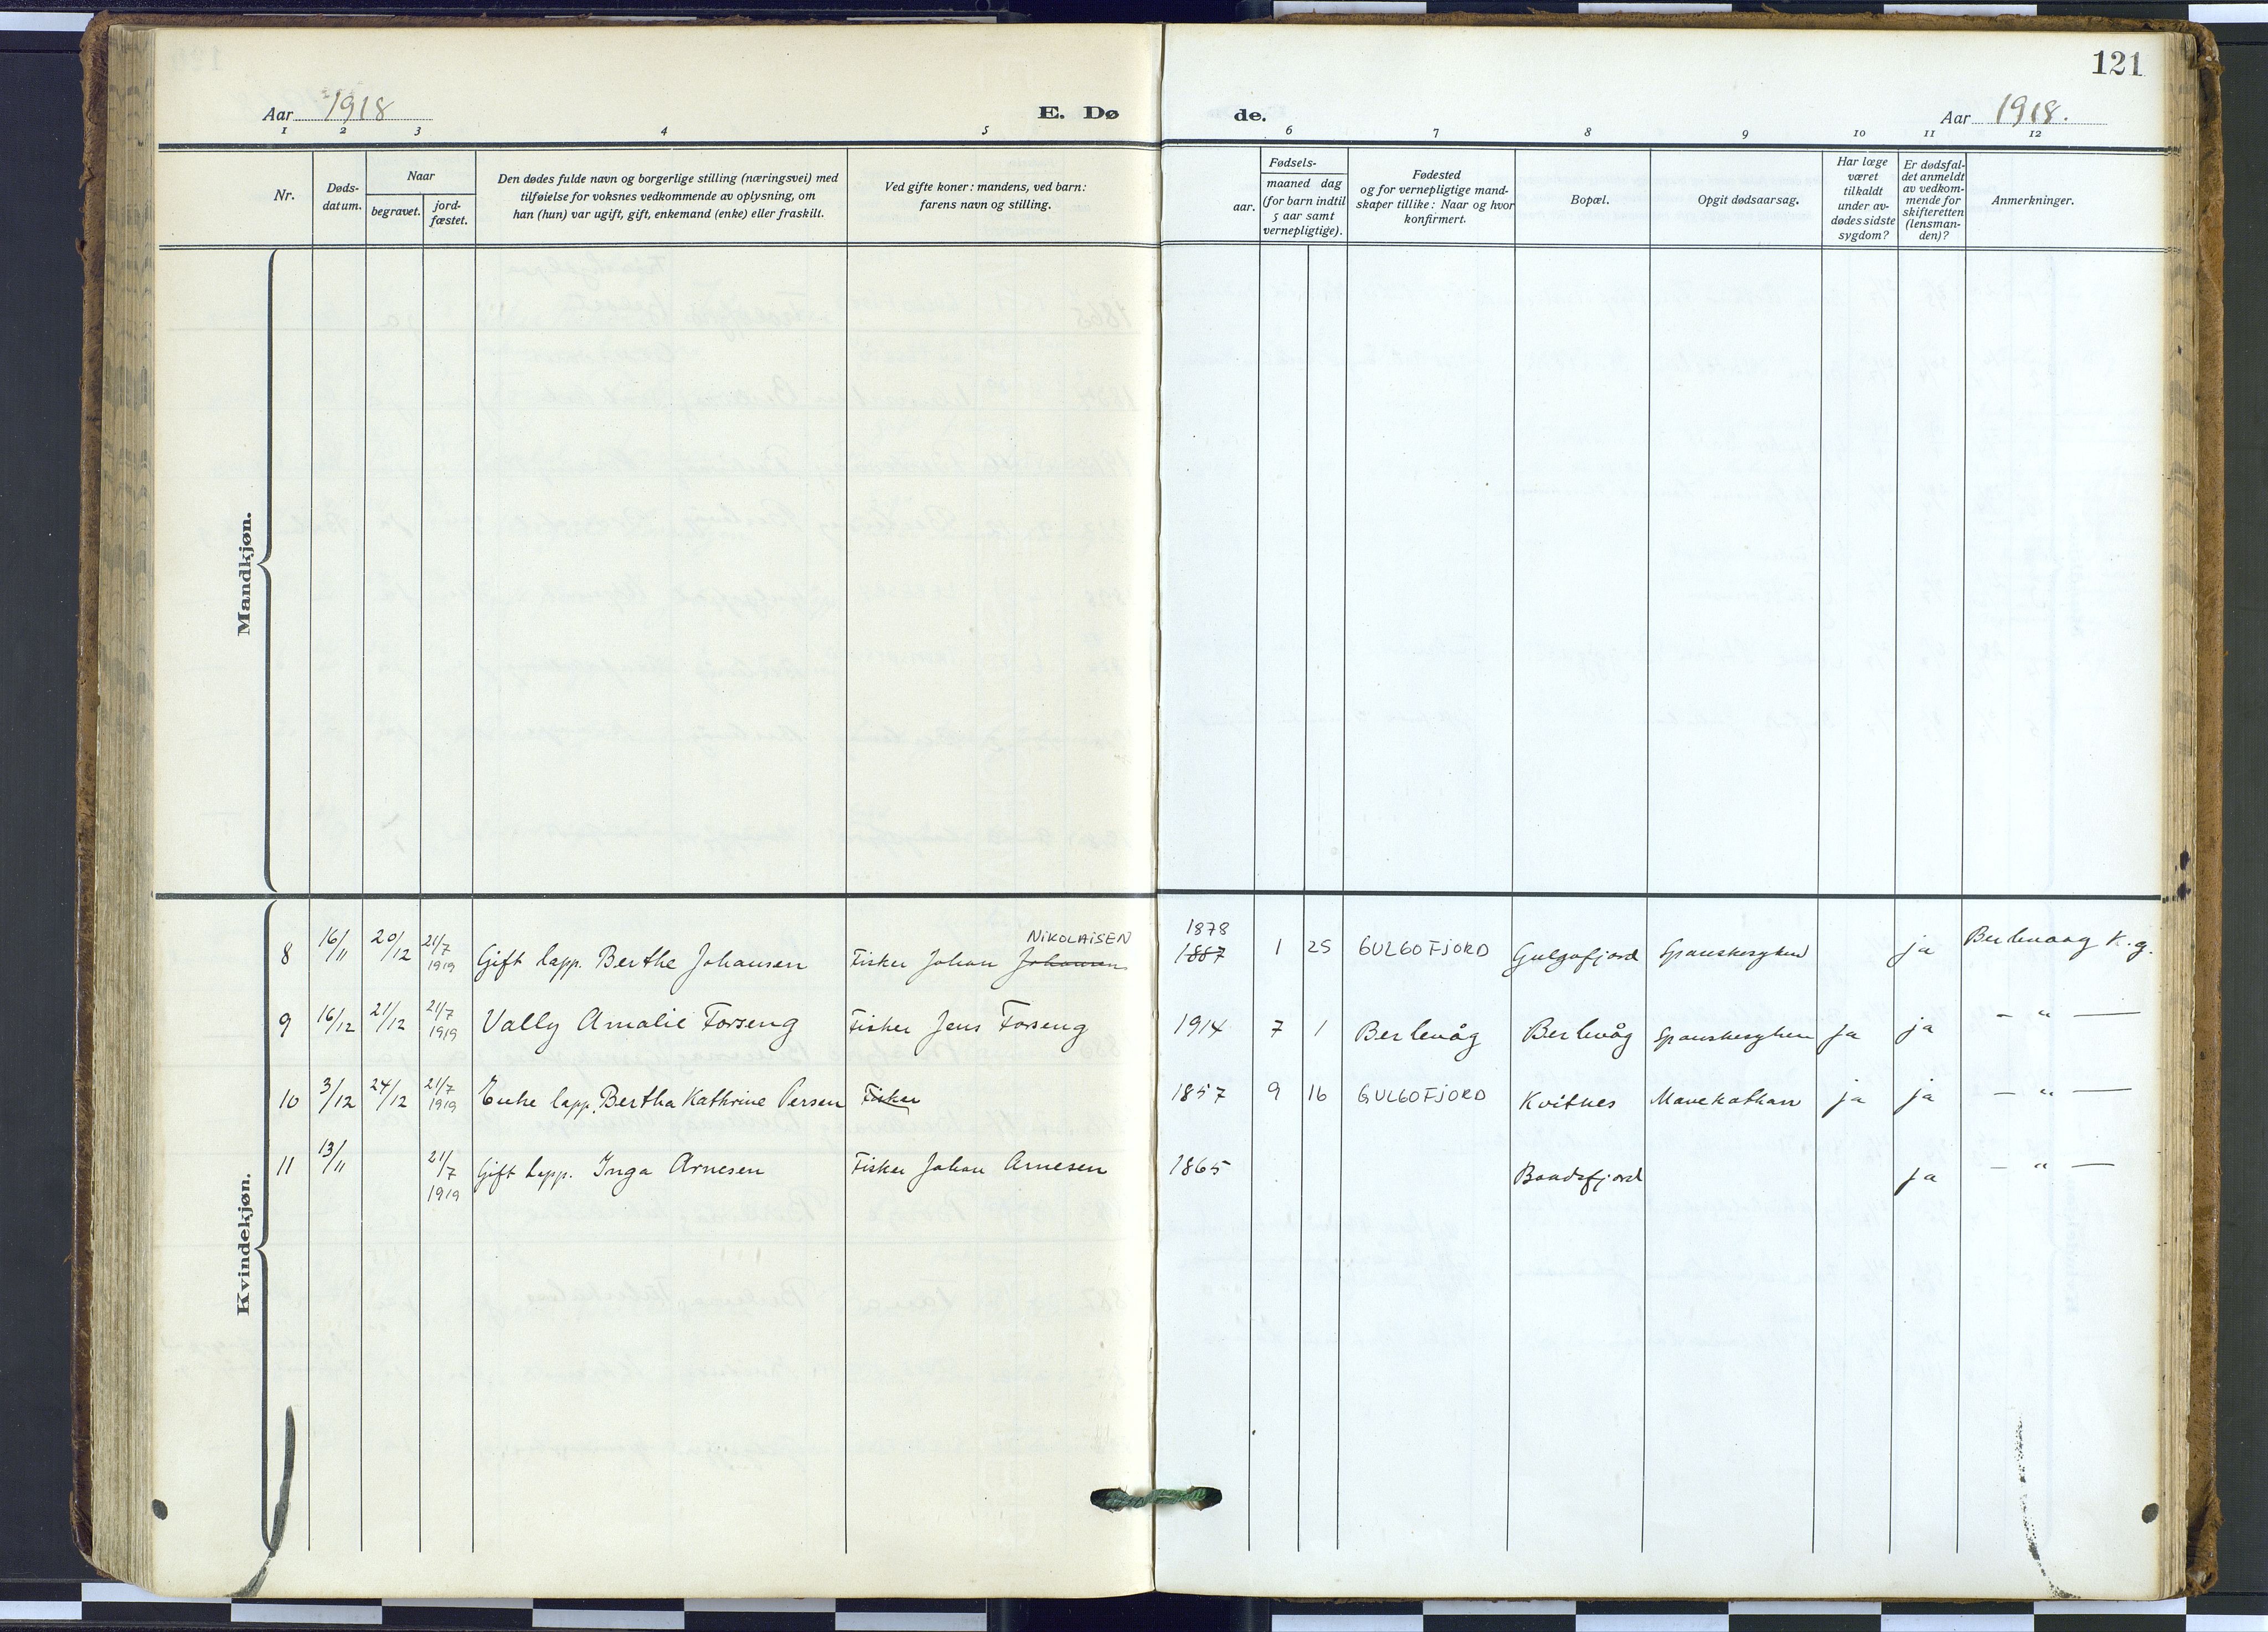 121
Aar 1918
E. Dø
de.
Aar 1918.
1 2 3 4 5 6 7 8 9 10 11 12
Nr.
Døds-
datum.
Naar
begravet.
jord-
fæstet.
Den dødes fulde navn og borgerlige stilling (næringsvei) med
tilføielse for voksnes vedkommende av oplysning, om
han (hun) var ugift, gift, enkemand (enke) eller fraskilt.
Ved gifte koner: mandens, ved barn:
farens navn og stilling.
Fødsels-
aar.
maaned dag
(for barn indtil
5 aar samt
vernepligtige).
Fødested
og for vernepligtige mand-
skaper tillike: Naar og hvor
konfirmert.
Bopæl.
Opgit dødsaarsag.
Har læge
været
tilkaldt
under av-
dødes sidste
sygdom?
Er dødsfal-
det anmeldt
av vedkom-
mende for
skifteretten
(lensman-
den)?
Anmerkninger.
Mandkjøn.
Kvindekjøn.
NIKOLAISEN 1878
8 16/11 20/12 21/7 1919 Gift lapp. Berthe Johansen Fisker Johan Johansen 1887 1 25 GULGOFJORD Gulgofjord Spanskesyken ja Berlevaag K.g.
9 16/12 21/12 21/7 1919 Vally Amalie Forseng Fisker Jens Forseng 1914 7 1 Berlevåg Berlevåg Spanskesyken ja ja — " —
10 3/12 24/12 21/7 1919 Enke lapp. Bertha Kathrine Persen Fisker 1857 9 16 GULGOFJORD Kvitnes Mavekatharr ja ja — " —
11 13/11 21/7 1919 Gift lapp. Inga Arnesen Fisker Johan Arnesen 1865 Baadsfjord ja — " —